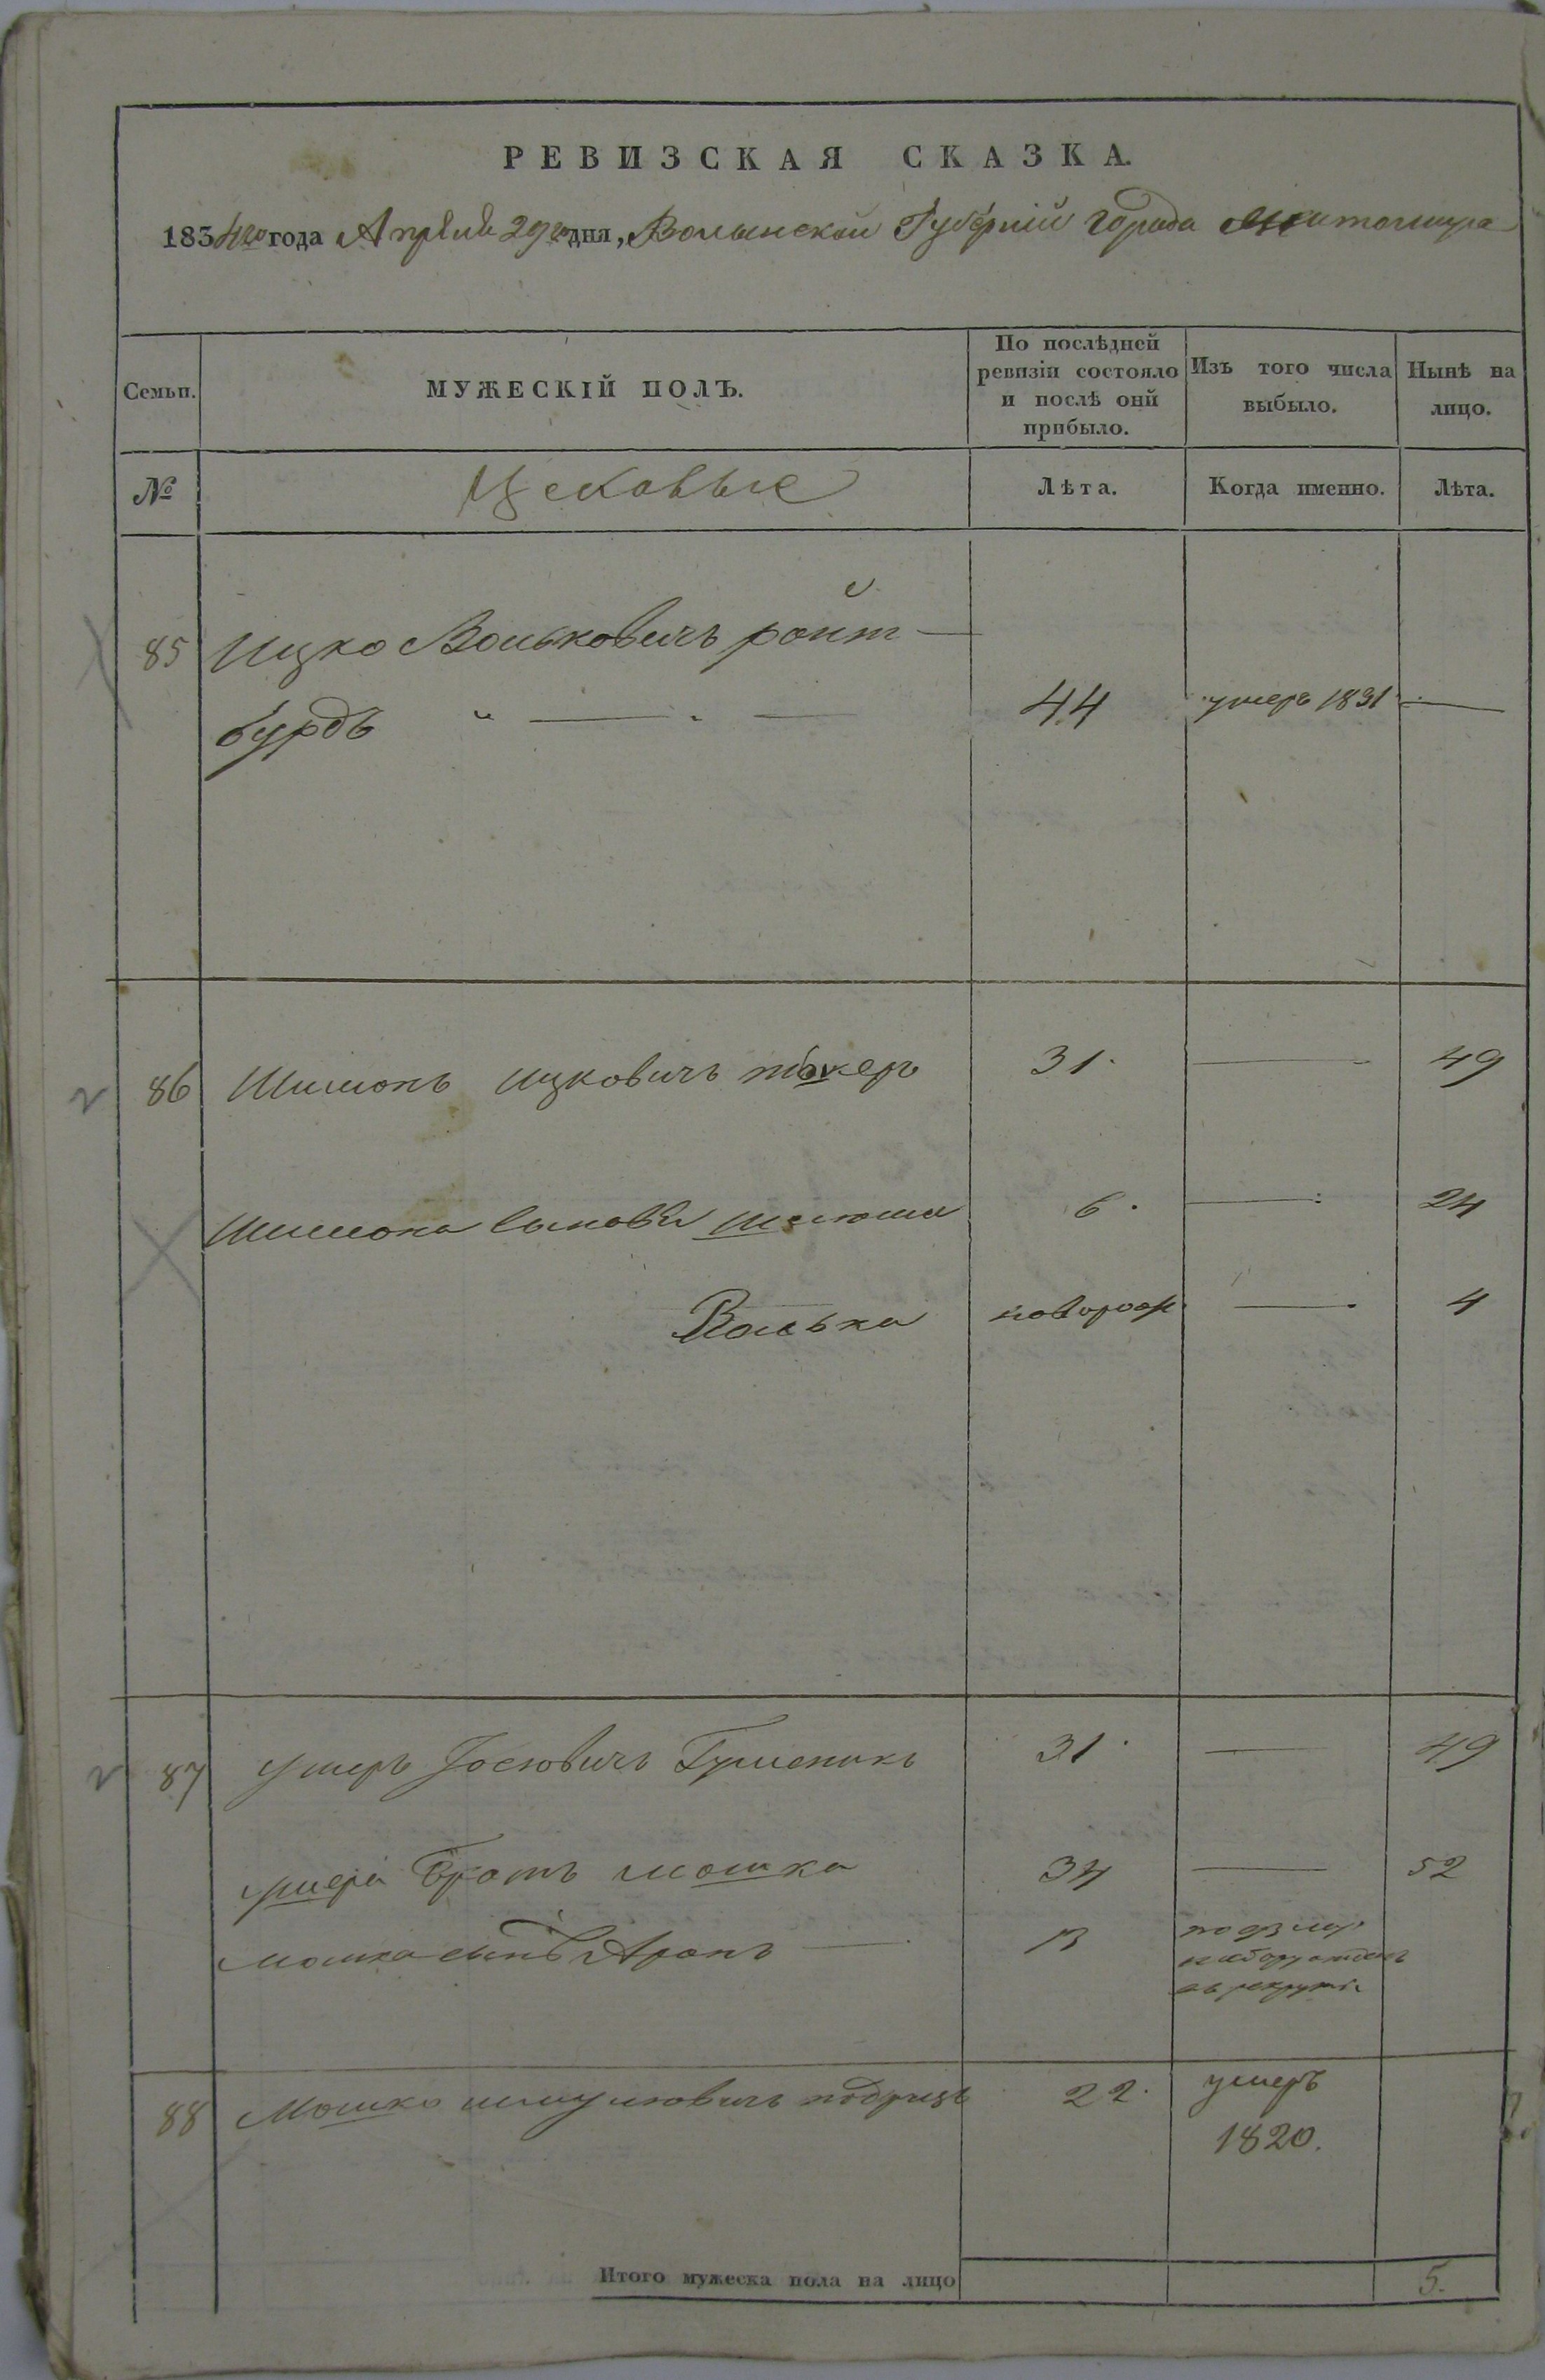 РЕВИЗСКАЯ СКАЗКА.
1834го года Апреля 29го дня, Волынской Губерніи города Житомира
Семьи.
МУЖЕСКІЙ ПОЛЪ.
По послѣдней ревизіи состояло и послѣ оній прибыло.
Изъ того числа выбыло.
Нынѣ на лицо.
№
Цеховые
Лѣта.
Когда именно.
Лѣта.
85 Ицко Вольковичъ ройт
бурдъ 44 умеръ 1831
86 Шимонъ Ицковичъ 31. 49
Шимона сыновя 6. 24
Волька новорож 4
87 Ушеръ Іосіовичъ Гуменикъ 31. 49
Ушера Братъ Мошка 34 52
Мошка сынъ Аронъ 13
въ рекруты
88 Мошко 22. умеръ
1820.
Итого мужеска пола на лицо 5.